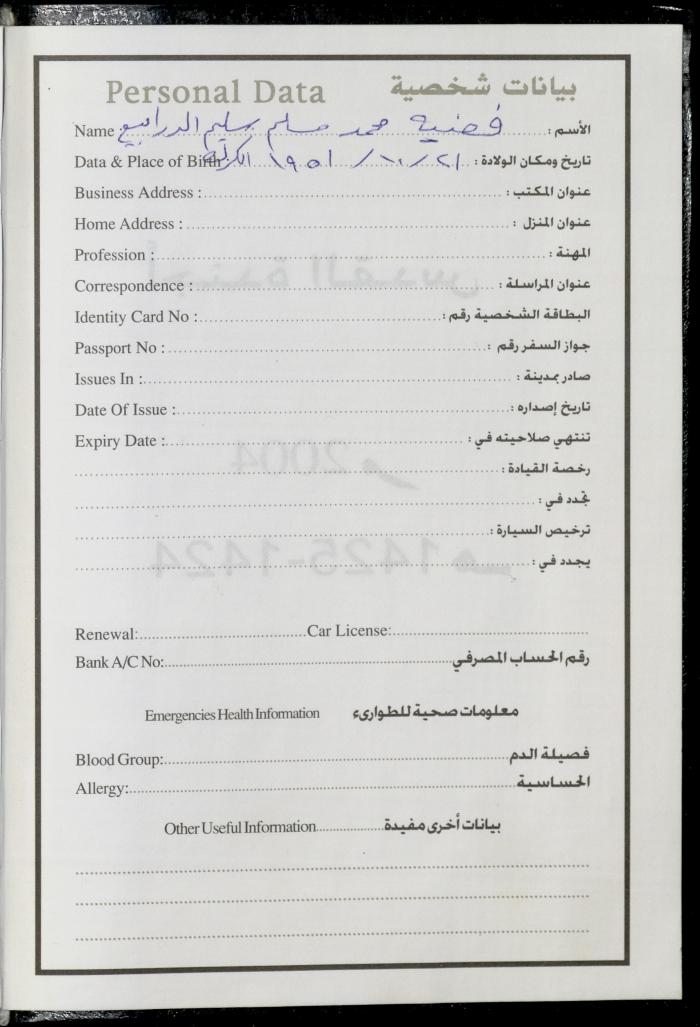 Personal Data بيانات شخصية
Name فضيه محمد مسلم سليم الدرابيع الأسم :
Data & Place of Birth ٢١/١٠/١٩٥١ تاريخ ومكان الولادة :
Business Address : عنوان المكتب :
Home Address : عنوان المنزل :
Profession : المهنة :
Correspondence : عنوان المراسلة :
Identity Card No : البطاقة الشخصية رقم :
Passport No : جواز السفر رقم :
Issues In : صادر بمدينة :
Date Of Issue : تاريخ إصداره :
Expiry Date : تنتهي صلاحيته في :
رخصة القيادة :
تجدد في :
ترخيص السيارة :
يجدد في :
Renewal: Car License:
Bank A/C No: رقم الحساب المصرفي
Emergencies Health Information معلومات صحية للطوارىء
Blood Group: فصيلة الدم
Allergy: الحساسية
Other Useful Information بيانات أخرى مفيدة